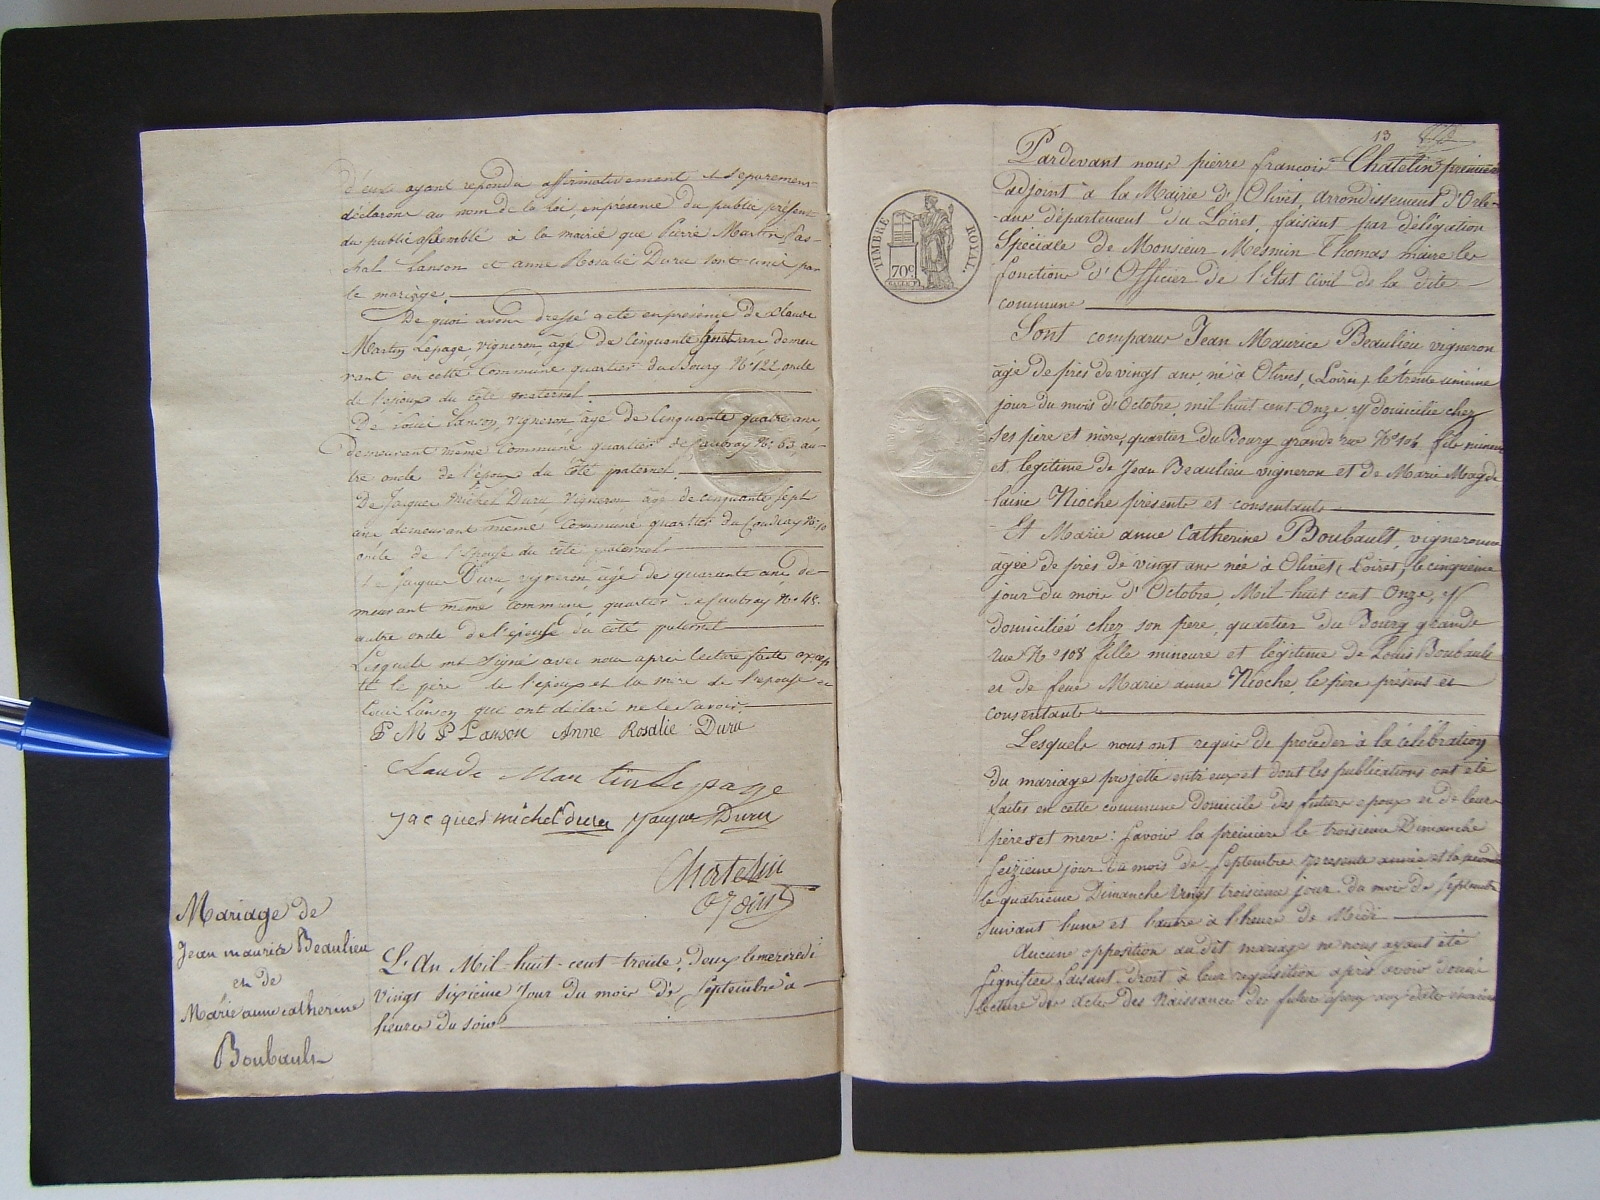 d'eux ayant repondu affirmativement et separement
déclarons au nom de la loi, en présence du public présent
du public assemblé à la mairie que Pierre Martin Pas-
chal Lanson et anne Rosalie Duru sont unis par
le mariage.
De quoi avons dressé acte en présence de Claude
Martin Lepage, vigneron, âgé de Cinquante huit ans demeu
rant en cette Commune quartier du Bourg N° 122, oncle
de l'époux du côté maternel.
De Louis Lanson, vigneron âgé de Cinquante quatre ans,
demeurant même Commune quartier de Caubray N° 63, au-
tre oncle de l'époux du côté paternel.
De Jacques Michel Duru, vigneron âgé de cinquante sept
ans demeurant même Commune quartier du Coudray N° 10
oncle de l'épouse du côté paternel.
Jacques Duru, vigneron, âgé de quarante ans de-
meurant même Commune, quartier de Caubray N° 45.
autre oncle de l'épouse du côté paternel
Lesquels ont signé avec nous après lecture faite excep
té le père de l'époux et la mère de l'épouse et
Louis Lanson qui ont déclaré ne le savoir.
P M P Lanson Anne Rosalie Duru
Claude Martin Lepage
Jacques michel duru Jacques Duru
Chatelin
Mariage de
Jean maurice Beaulieu
et de
Marie anne catherine
Boubault
L'An Mil-huit-cent-trente-deux le mercredi
vingt sixième Jour du mois de Septembre à
heures du soir
13
Pardevant nous pierre françois Chatelin premier
adjoint à la Mairie d'Olivet, arrondissement d'Orlé-
-ans département du Loiret, faisant par délégation
Spéciale de Monsieur Mesmin Thomas maire les
fonctions d'Officier de l'état Civil de la dite
commune
TIMBRE ROYAL.
70c
Sont comparus Jean Maurice Beaulieu vigneron
âgé de près de vingt ans, né à Olivet, (Loiret), le trente unième
jour du mois d'Octobre, mil huit cent Onze, y domicilié chez
ses père et mère, quartier du Bourg grande rue N° 106 fils mineur
et légitime de Jean Beaulieu vigneron et de Marie Magde
laine Nioche présents et consentants
Et Marie anne Catherine Boubault, vigneronne
âgée de près de vingt ans née à Olivet (Loiret), le cinquième
jour du mois d'Octobre, Mil-huit cent Onze, y
domiciliée chez son père, quartier du Bourg grande
rue N° 108 fille mineure et légitime de Louis Boubault
et de feue Marie anne Nioche, le père présent et
consentant
Lesquels nous ont requis de proceder à la célébration
du mariage projetté entre eux et dont les publications ont été
faites en cette commune domicile des futurs époux et de leurs
pères et mère: savoir la premiere le troisième Dimanche
Seizième jour du mois de Septembre présente année et la seconde
le quatrième Dimanche vingt troisième jour du mois de Septembre
suivant l'une et l'autre à l'heure de Midi
Aucune opposition au dit mariage ne nous ayant été
Signifiée faisant droit à leur requisition après avoir donné
lecture des actes des Naissances des futurs époux aux dates